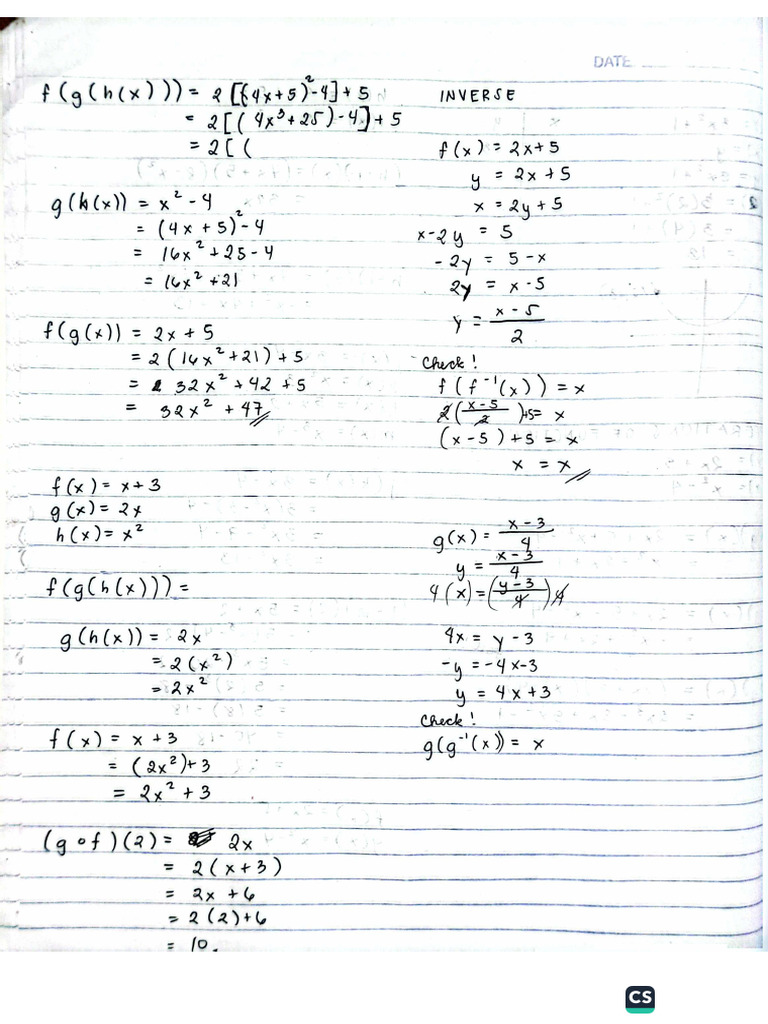 DATE
f(g(h(x))) = 2[(4x+5)²-4]+5
= 2[(4x³+25)-4]+5
= 2[(
g(h(x)) = x² - 4
= (4x + 5)² - 4
= 16x² + 25 - 4
= 16x² + 21
f(g(x)) = 2x + 5
= 2(16x² + 21) + 5
= 32x² + 42 + 5
= 32x² + 47
f(x) = x+3
g(x) = 2x
h(x) = x²
f(g(h(x))) =
g(h(x)) = 2x
= 2(x²)
= 2x²
f(x) = x + 3
= (2x²)+3
= 2x² + 3
(g∘f)(2) = 2x
= 2(x+3)
= 2x + 6
= 2(2)+6
= 10
INVERSE
f(x) = 2x+5
y = 2x + 5
x = 2y + 5
x-2y = 5
-2y = 5-x
2y = x-5
y = x-5/2
Check!
f(f⁻¹(x)) = x
2(x-5/2)+5 = x
(x-5)+5 = x
x = x
g(x) = x-3/4
y = x-3/4
4(x) = (y-3/4)4
4x = y-3
-y = -4x-3
y = 4x+3
Check!
g(g⁻¹(x)) = x
CS